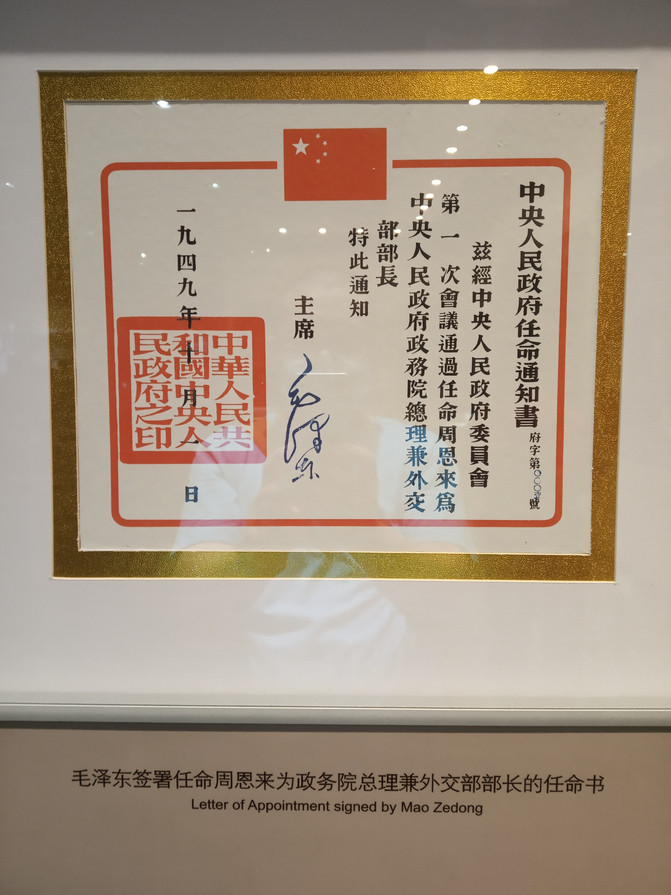 中央人民政府任命通知書
府字第
號
兹經中央人民政府委員會
第一次會議通過任命周恩來爲
中央人民政府政務院總理兼外交
部部長
特此通知
主席
毛澤東
一九四九年十月一日
中華人民共
和國中央人
民政府之印
毛泽东签署任命周恩来为政务院总理兼外交部部长的任命书
Letter of Appointment signed by Mao Zedong